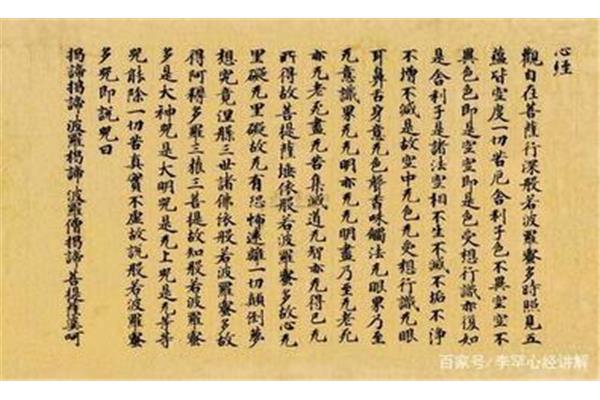 心經
觀自在菩薩行深般若波羅蜜多時照見五
蘊皆空度一切苦厄舍利子色不異空空不
異色色即是空空即是色受想行識亦復如
是舍利子是諸法空相不生不滅不垢不淨
不增不減是故空中无色无受想行識无眼
耳鼻舌身意无色聲香味觸法无眼界乃至
无意識界无无明亦无无明盡乃至无老死
亦无老死盡无苦集滅道无智亦无得已无
所得故菩提薩埵依般若波羅蜜多故心无
罣礙无罣礙故无有恐怖遠離一切顛倒夢
想究竟涅槃三世諸佛依般若波羅蜜多故
得阿耨多羅三藐三菩提故知般若波羅蜜
多是大神咒是大明咒是无上咒是无等等
咒能除一切苦真實不虛故說般若波羅蜜
多咒即說咒曰
揭諦揭諦 波羅揭諦 波羅僧揭諦 菩提薩婆訶
百家号/李罕心经讲解